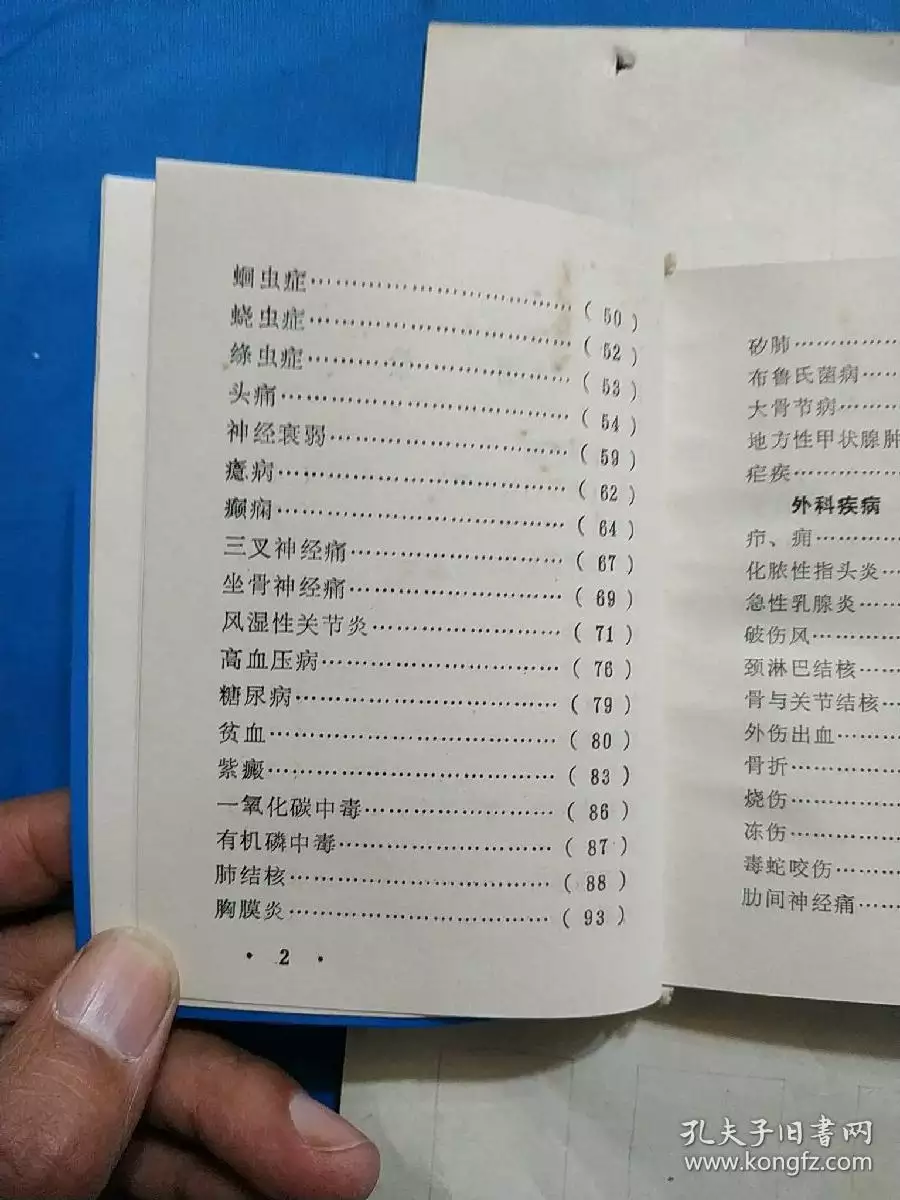 蛔虫症……………………………( 50 )
蛲虫症……………………………( 52 )
绦虫症……………………………( 53 )
头痛………………………………( 54 )
神经衰弱…………………………( 59 )
癔病………………………………( 62 )
癫痫………………………………( 64 )
三叉神经痛………………………( 67 )
坐骨神经痛………………………( 69 )
风湿性关节炎……………………( 71 )
高血压病…………………………( 76 )
糖尿病……………………………( 79 )
贫血………………………………( 80 )
紫癜………………………………( 83 )
一氧化碳中毒……………………( 86 )
有机磷中毒………………………( 87 )
肺结核……………………………( 88 )
胸膜炎……………………………( 93 )
· 2 ·
矽肺……………
布鲁氏菌病……
大骨节病………
地方性甲状腺肿
疟疾……………
外科疾病
疖、痈…………
化脓性指头炎…
急性乳腺炎……
破伤风…………
颈淋巴结核……
骨与关节结核…
外伤出血………
骨折……………
烧伤……………
冻伤……………
毒蛇咬伤………
肋间神经痛……
孔夫子旧书网
www.kongfz.com